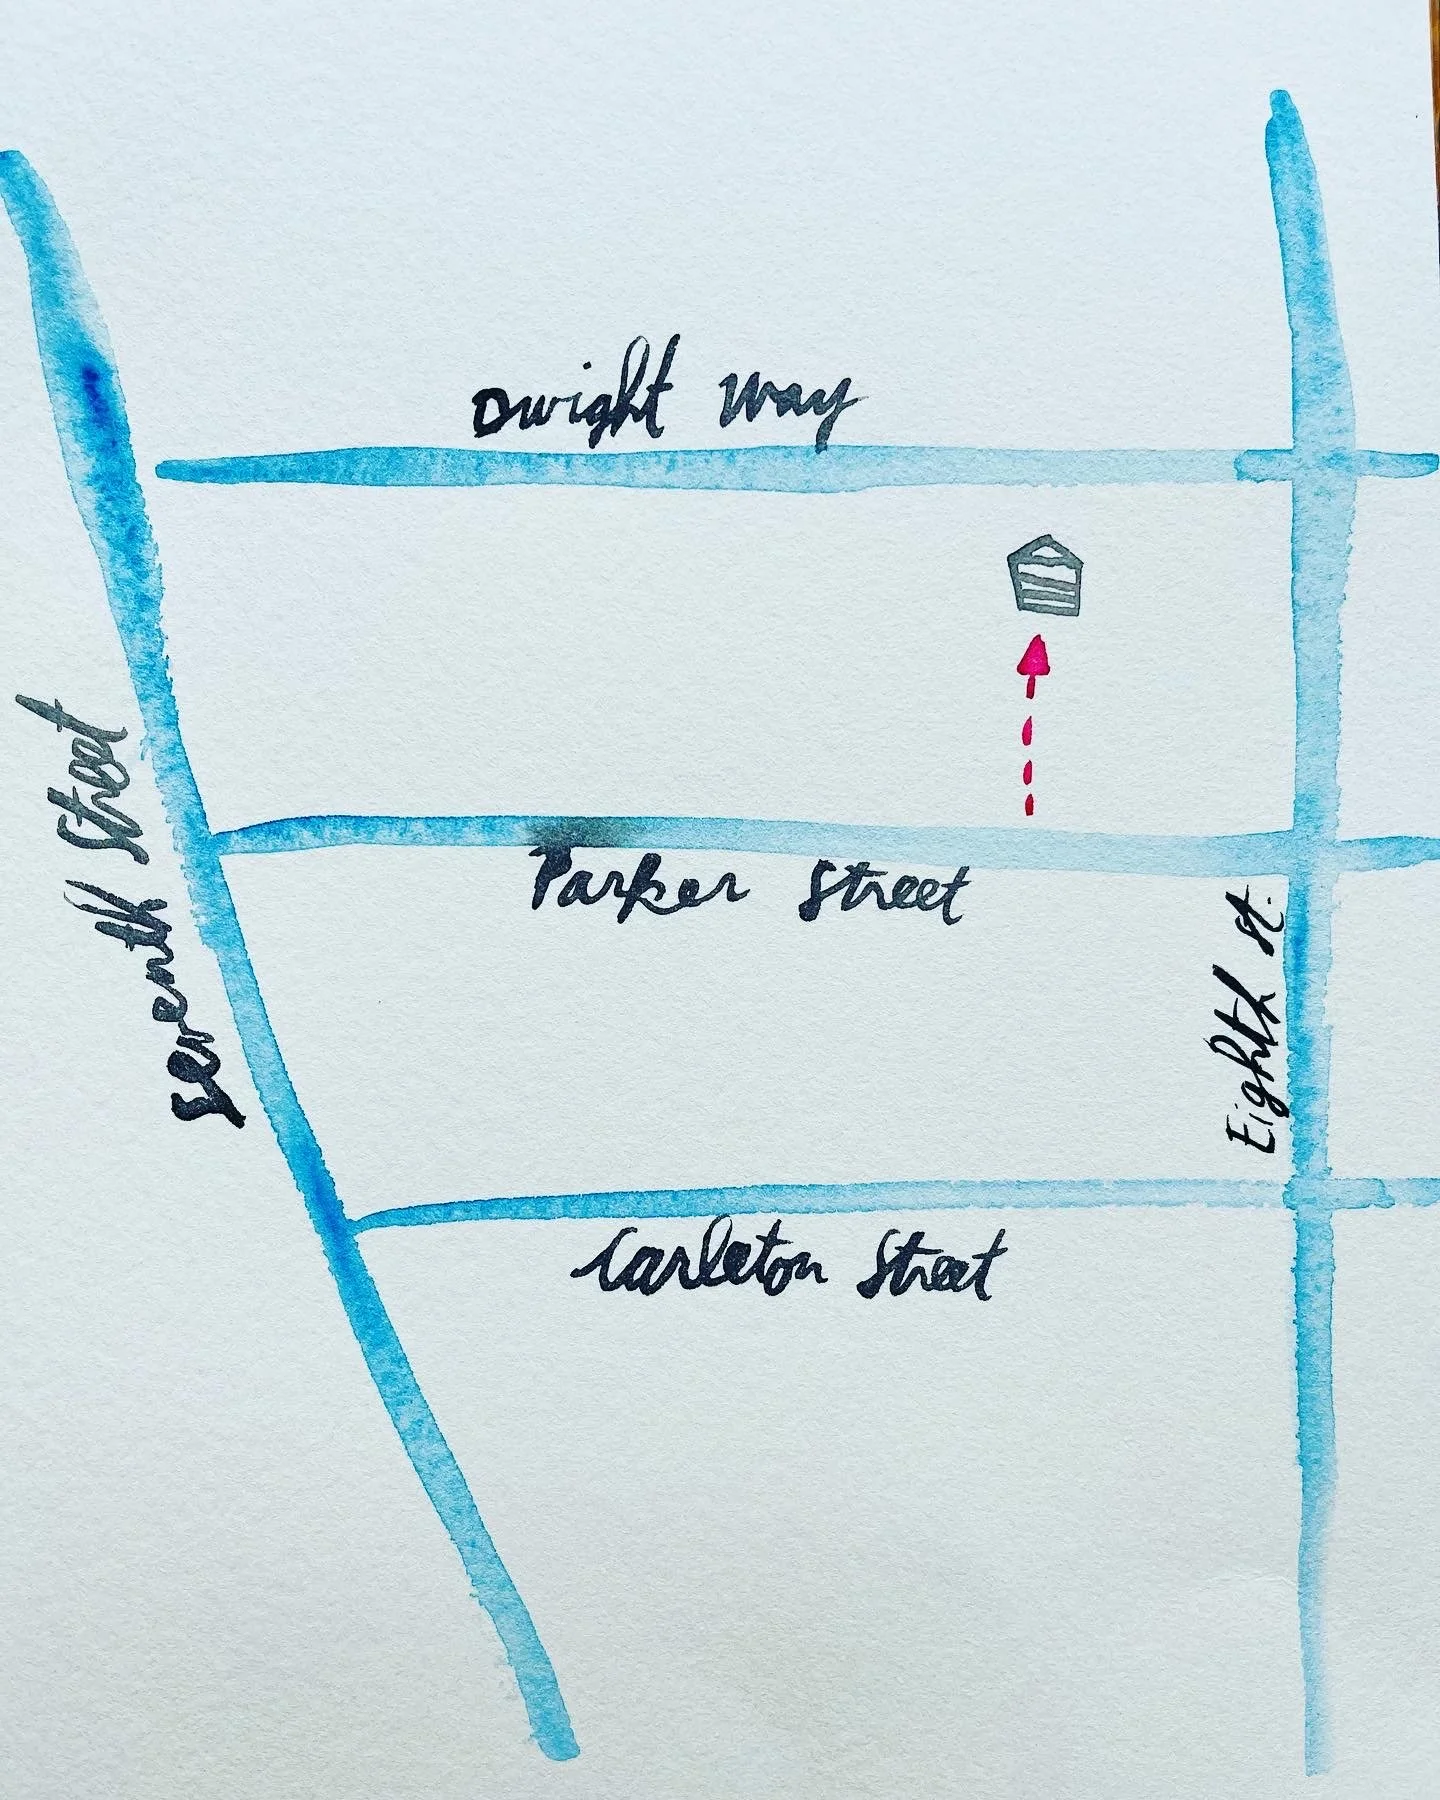 Dwight Way
Seventh Street
Parker Street
Eighth St.
Carleton Street